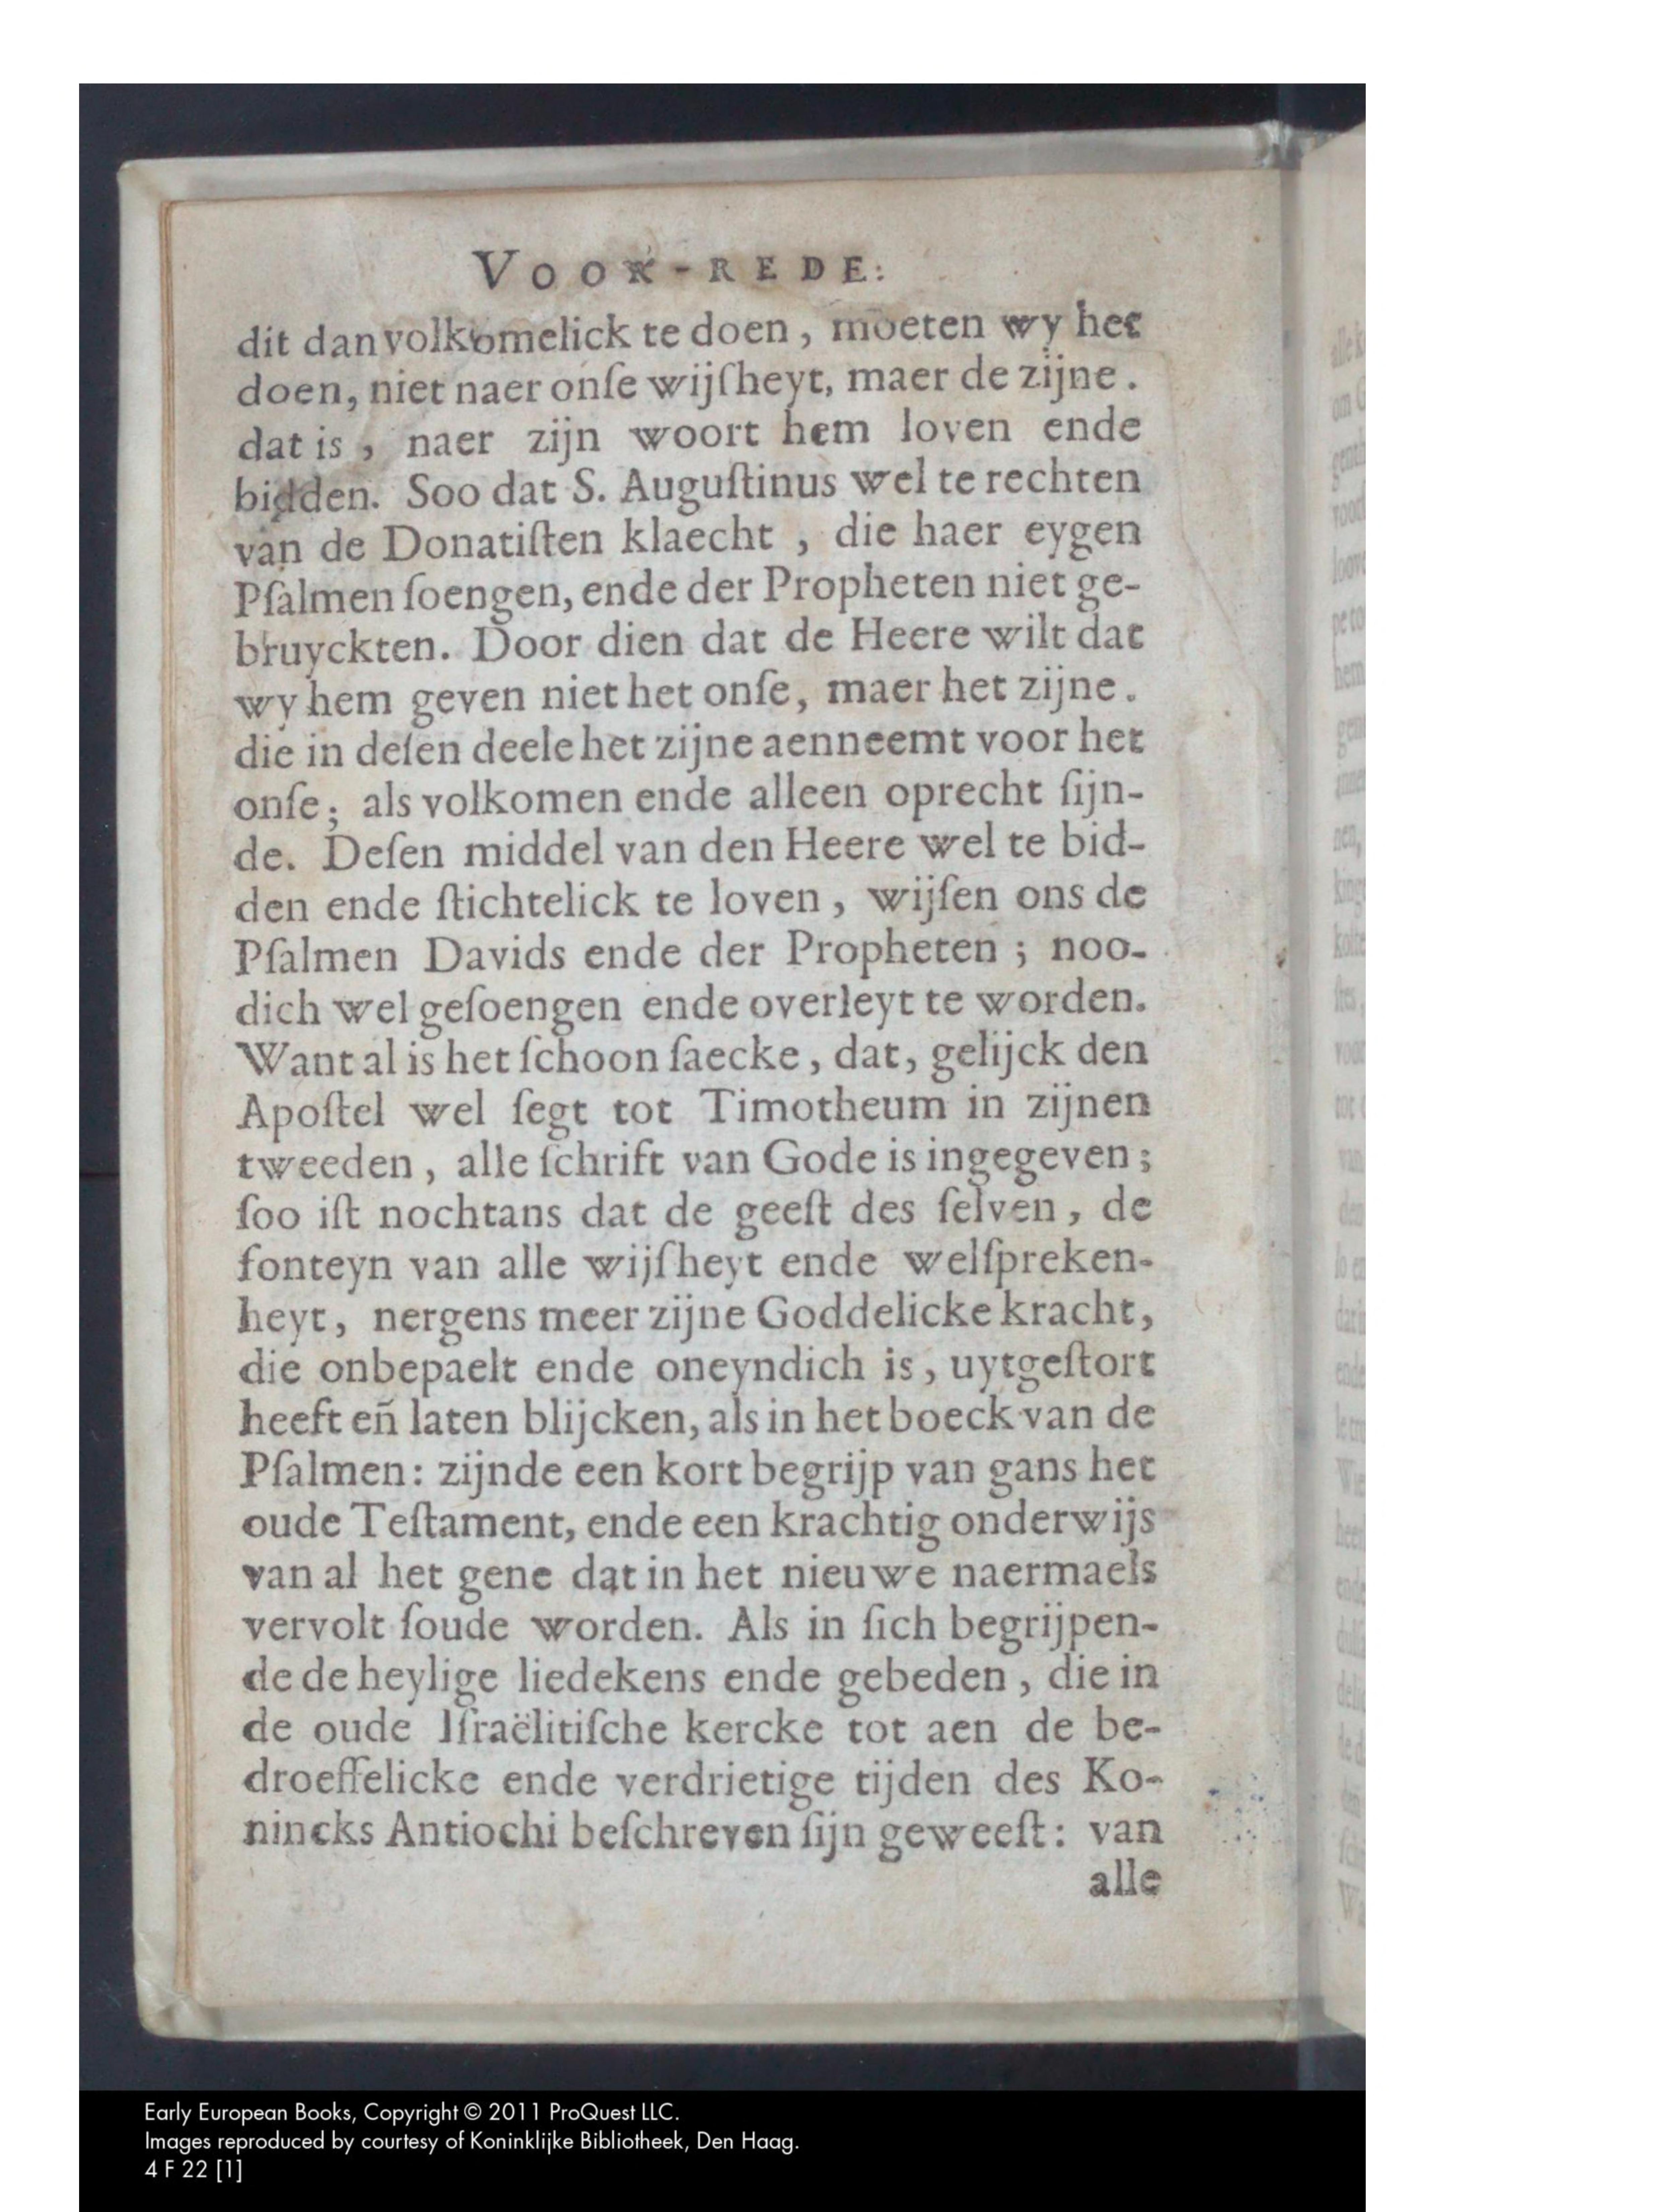 VOOR-REDE:
dit dan volkomelick te doen, moeten wy het
doen, niet naer onſe wijſheyt, maer de zijne.
dat is, naer zijn woort hem loven ende
bidden. Soo dat S. Auguſtinus wel te rechten
van de Donatiſten klaecht, die haer eygen
Pſalmen ſoengen, ende der Propheten niet ge-
bruyckten. Door dien dat de Heere wilt dat
wy hem geven niet het onſe, maer het zijne.
die in deſen deele het zijne aenneemt voor het
onſe; als volkomen ende alleen oprecht ſijn-
de. Deſen middel van den Heere wel te bid-
den ende ſtichtelick te loven, wijſen ons de
Pſalmen Davids ende der Propheten; noo-
dich wel geſoengen ende overleyt te worden.
Want al is het ſchoon ſaecke, dat, gelijck den
Apoſtel wel ſegt tot Timotheum in zijnen
tweeden, alle ſchrift van Gode is ingegeven;
ſoo iſt nochtans dat de geeſt des ſelven, de
fonteyn van alle wijſheyt ende welſpreken-
heyt, nergens meer zijne Goddelicke kracht,
die onbepaelt ende oneyndich is, uytgeſtort
heeft eñ laten blijcken, als in het boeck van de
Pſalmen: zijnde een kort begrijp van gans het
oude Teſtament, ende een krachtig onderwijs
van al het gene dat in het nieuwe naermaels
vervolt ſoude worden. Als in ſich begrijpen-
de de heylige liedekens ende gebeden, die in
de oude Iſraëlitiſche kercke tot aen de be-
droeffelicke ende verdrietige tijden des Ko-
nincks Antiochi beſchreven ſijn geweeſt: van
alle
Early European Books, Copyright © 2011 ProQuest LLC.
Images reproduced by courtesy of Koninklijke Bibliotheek, Den Haag.
4 F 22 [1]